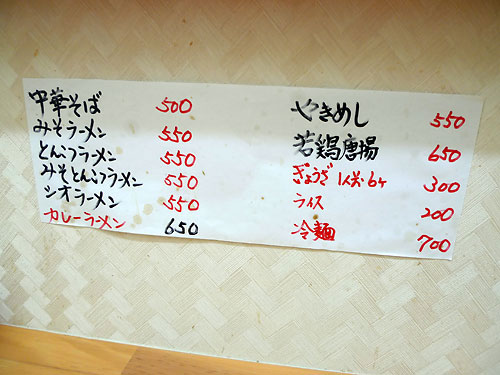 中華そば 500
みそラーメン 550
とんこつラーメン 550
みそとんこつラーメン 550
シオラーメン 550
カレーラーメン 650
やきめし 550
若鶏唐揚 650
ぎょうざ 1人前6ヶ 300
ライス 200
冷麺 700